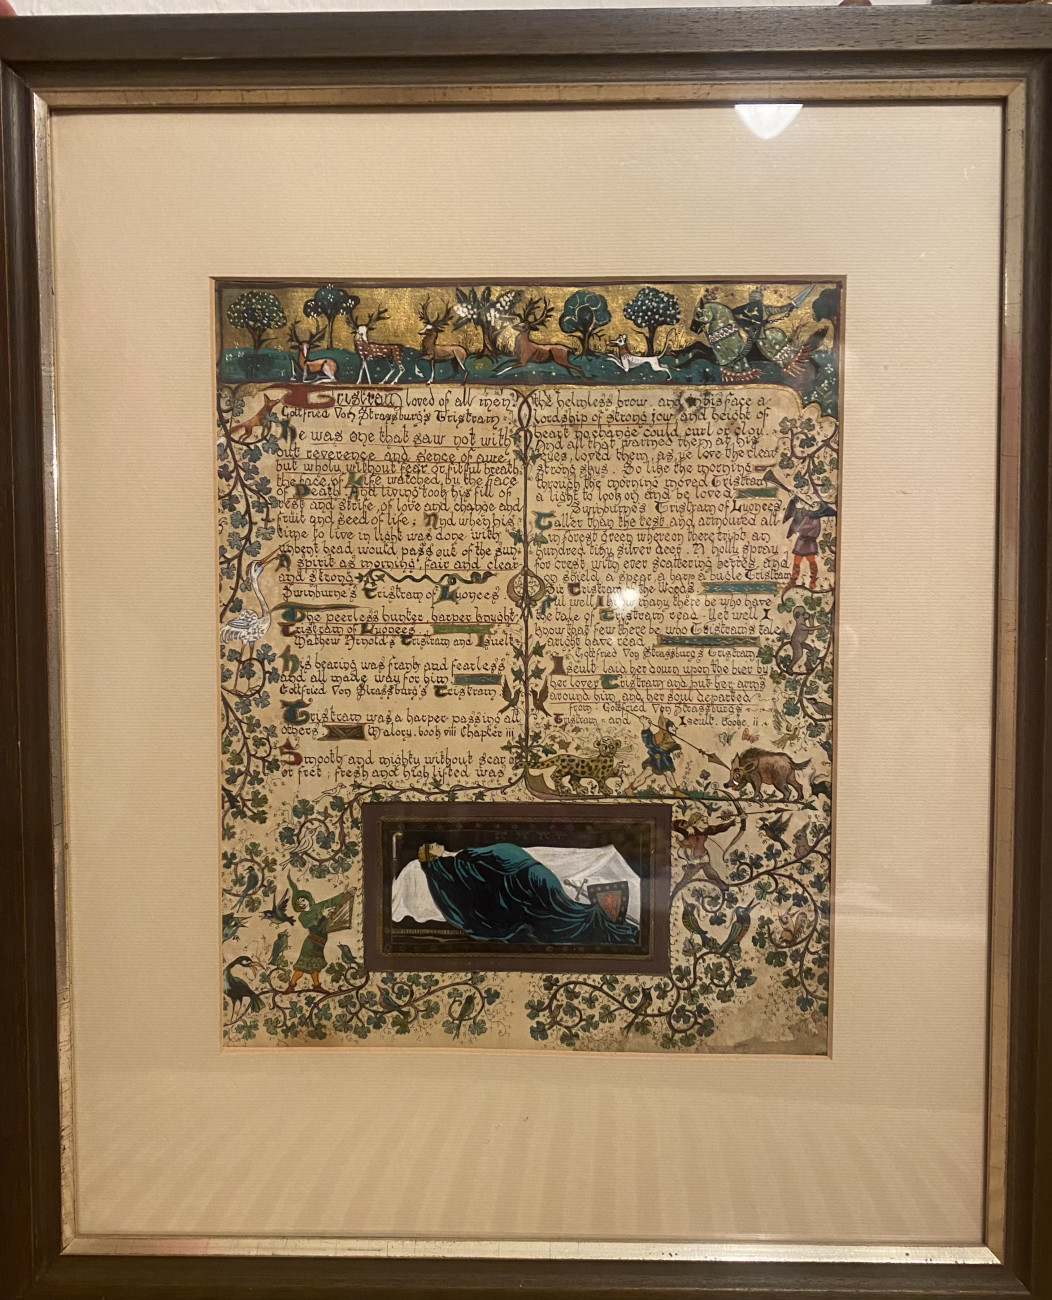 Tristram loved of all men.
Gottfried Von Strassburg's Tristram.
He was one that saw not with
out reverence and sence of awe
but wholy without fear or fitful breath
the face of Life watched by the face
of Death. And living took his fill of
rest and strife, of love and change and
fruit and seed of life; And when his
time to live in light was done with
unbent head would pass out of the sun
A spirit as morning, fair and clear
and strong
Swinburne's Tristram of Lyonees
The peerless hunter harper knight
Tristram of Lyonees
Mathew Arnold's Tristram and Iseult
His bearing was frank and fearless
and all made way for him
Gottfried Von Strassburg's Tristram
Tristram was a harper passing all
others. Malory. book viii Chapter iii
Smooth and mighty without scar
or fret; fresh and high lifted was
the helmless brow, and his face a
lordship of strong joy and height of
heart no change could curl or cloy.
And all that warned them at his
eyes, loved them, as ye love the clear
strong skys. So like the morning
through the morning moved Tristram
a light to look on and be loved
Swinburne's Tristram of Lyonees
Taller than the rest and armoured all
in forest green whereon there tript an
hundred tiny silver deer. A holly spray
for crest with ever scattering berres, and
on shield a spear a harp a bugle Tristram
Sir Tristram of the Woods.
Full well I know many there be who have
the tale of Tristram read. Yet well I
know that few there be who Tristrams tale
aright have read
Gottfried Von Strassburg's Tristram
Iseult laid her down upon the bier by
her lover Tristram and put her arms
around him, and her soul departed
from Gottfried Von Strassburg's
Tristram and Iseult. Booke. ii.